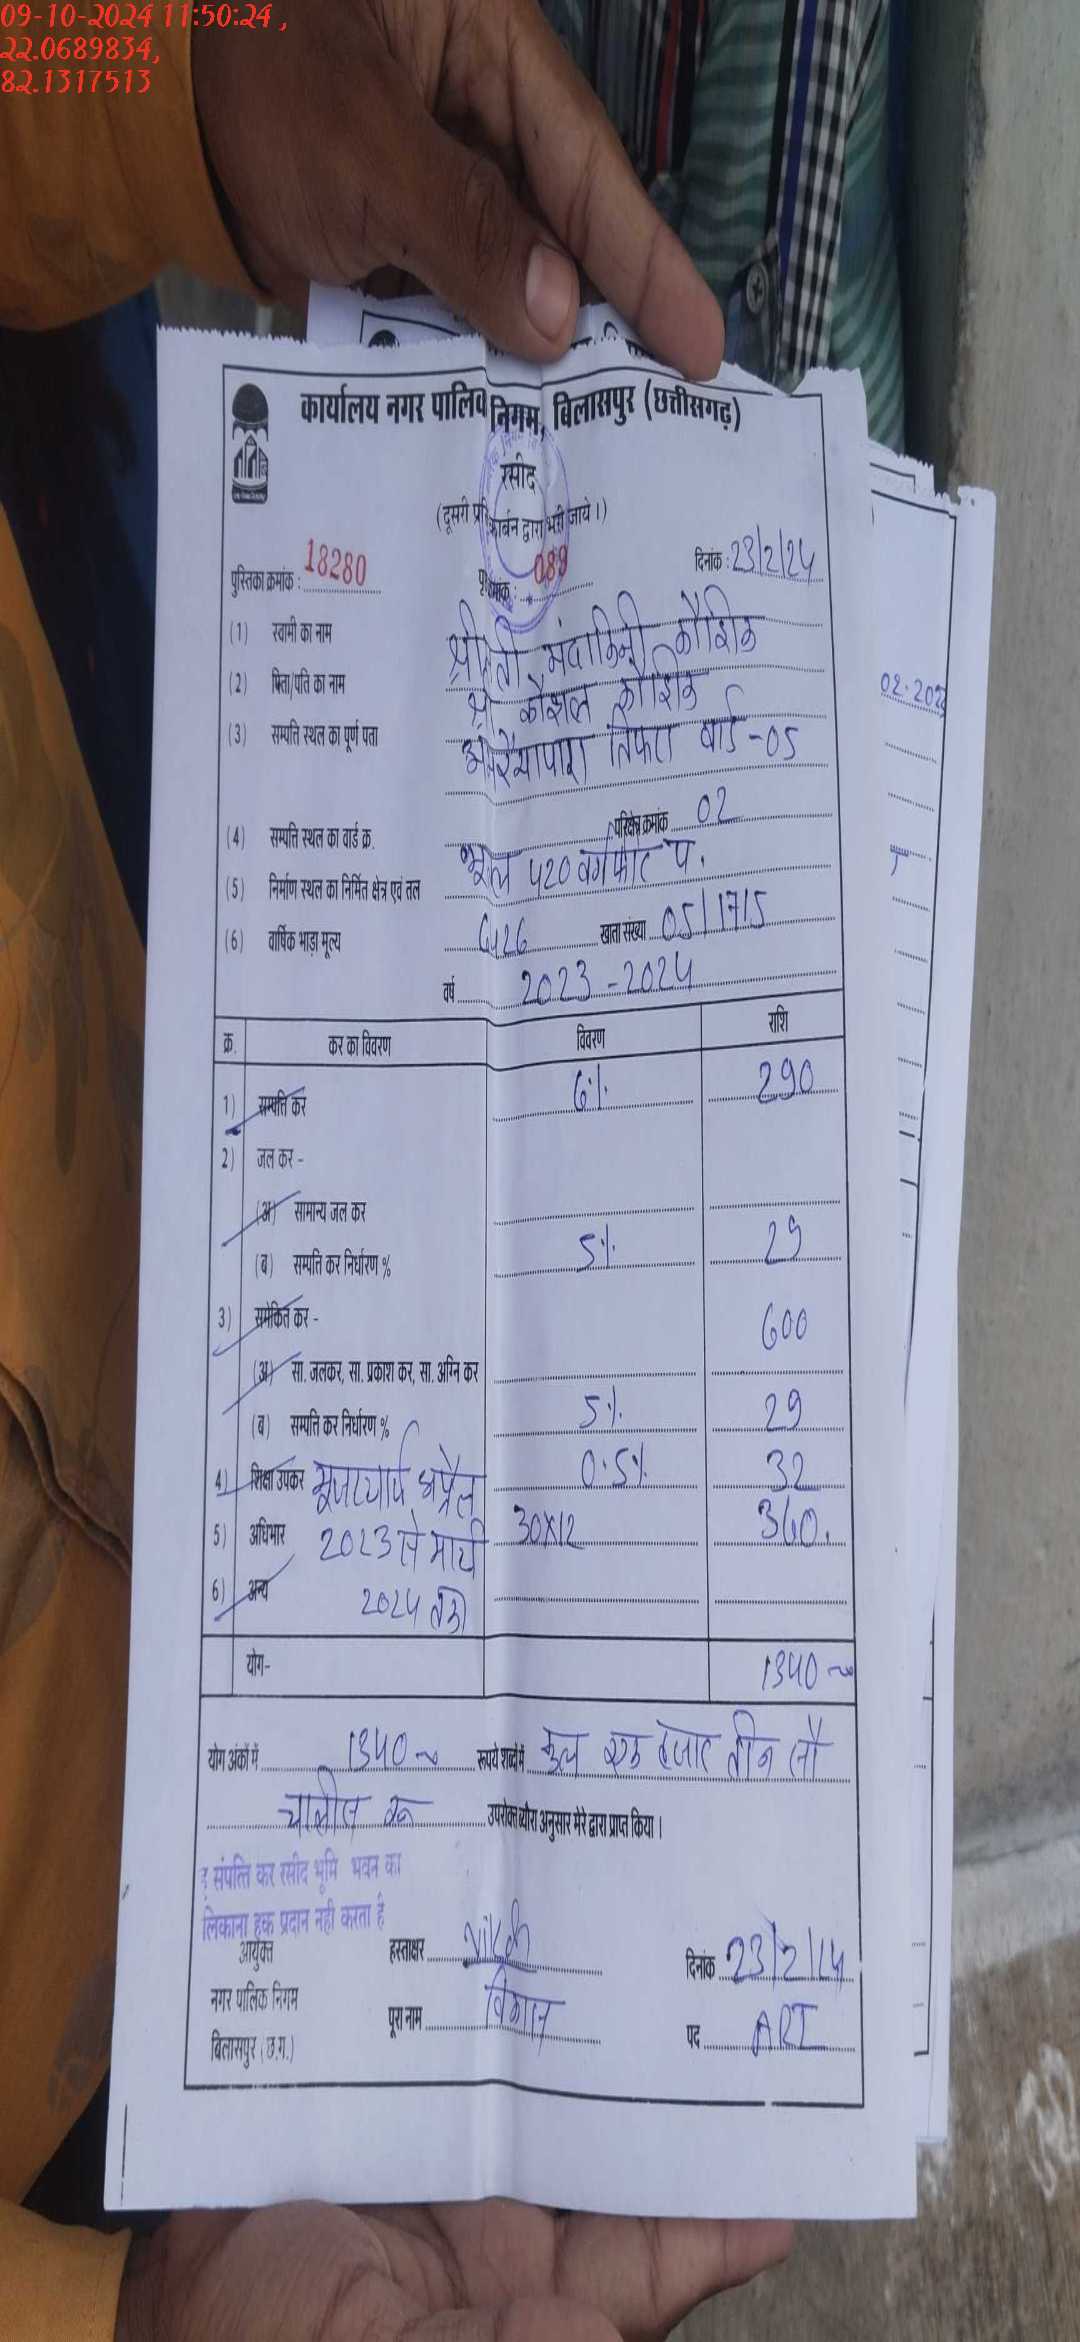 09-10-2024 11:50:24 ,
22.0689834,
82.1317513
कार्यालय नगर पालिक निगम, बिलासपुर (छत्तीसगढ़)
रसीद
(दूसरी प्रति कार्बन द्वारा भरी जाये ।)
पुस्तिका क्रमांक : 18280 089 दिनांक : 23/2/24
(1) स्वामी का नाम श्रीमती मंदाकिनी कौशिक
(2) पिता/पति का नाम श्री कौशल कौशिक
(3) सम्पत्ति स्थल का पूर्ण पता तिफरा वार्ड -05
(4) सम्पत्ति स्थल का वार्ड क्र. परिक्षेत्र क्रमांक 02
(5) निर्माण स्थल का निर्मित क्षेत्र एवं तल भूतल 420 वर्गफीट प.
(6) वार्षिक भाड़ा मूल्य 6426 खाता संख्या 05/1715
वर्ष 2023-2024
क्र. कर का विवरण विवरण राशि
1) सम्पत्ति कर 6% 290
2) जल कर -
(अ) सामान्य जल कर
(ब) सम्पत्ति कर निर्धारण % 5% 29
3) समेकित कर - 600
(अ) सा. जलकर, सा. प्रकाश कर, सा. अग्नि कर
(ब) सम्पत्ति कर निर्धारण % 5% 29
4) शिक्षा उपकर अप्रैल 0.5% 32
5) अधिभार 2023 से मार्च 30x12 360.
6) अन्य 2024 तक
योग- 1340
योग अंकों में 1340 रूपये शब्दों में कुल एक हजार तीन सौ
चालीस रू उपरोक्त ब्यौरा अनुसार मेरे द्वारा प्राप्त किया ।
संपत्ति कर रसीद भूमि भवन का
लिकाना हक प्रदान नही करता है
आयुक्त हस्ताक्षर दिनांक 23/2/24
नगर पालिक निगम पूरा नाम पद ART
बिलासपुर (छ.ग.)